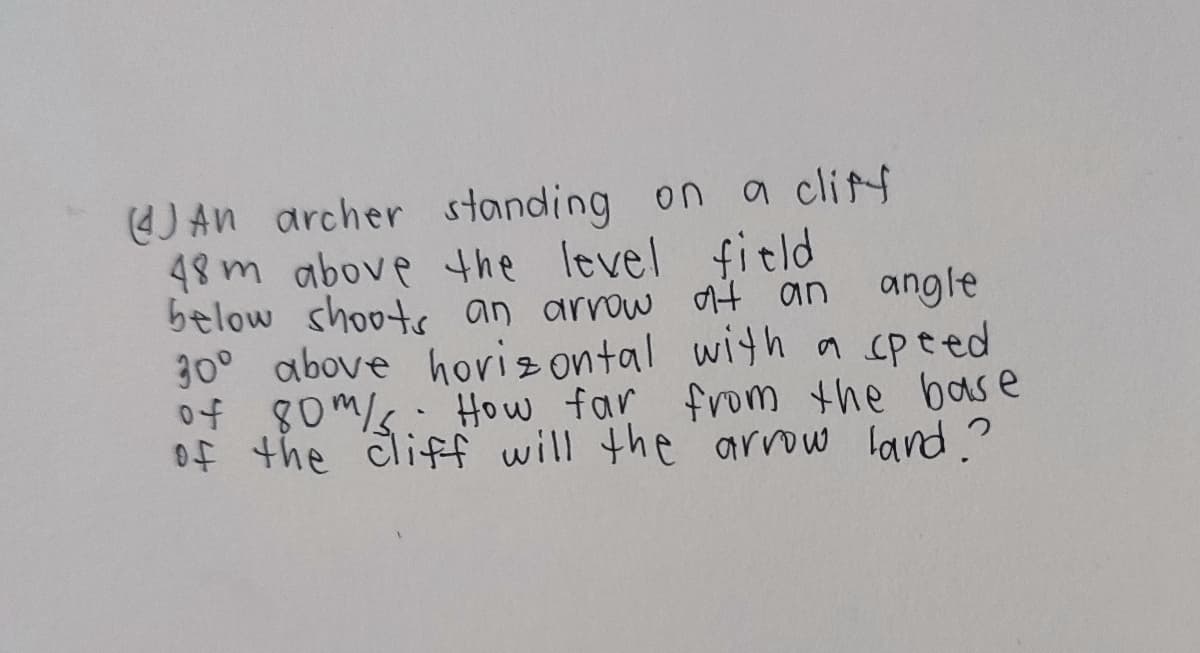 (4) An archer standing on a cliff
48m above the level field
below shoots an arrow at an angle
30° above horizontal with a speed
of 80m/s. How far from the base
of the cliff will the arrow land?